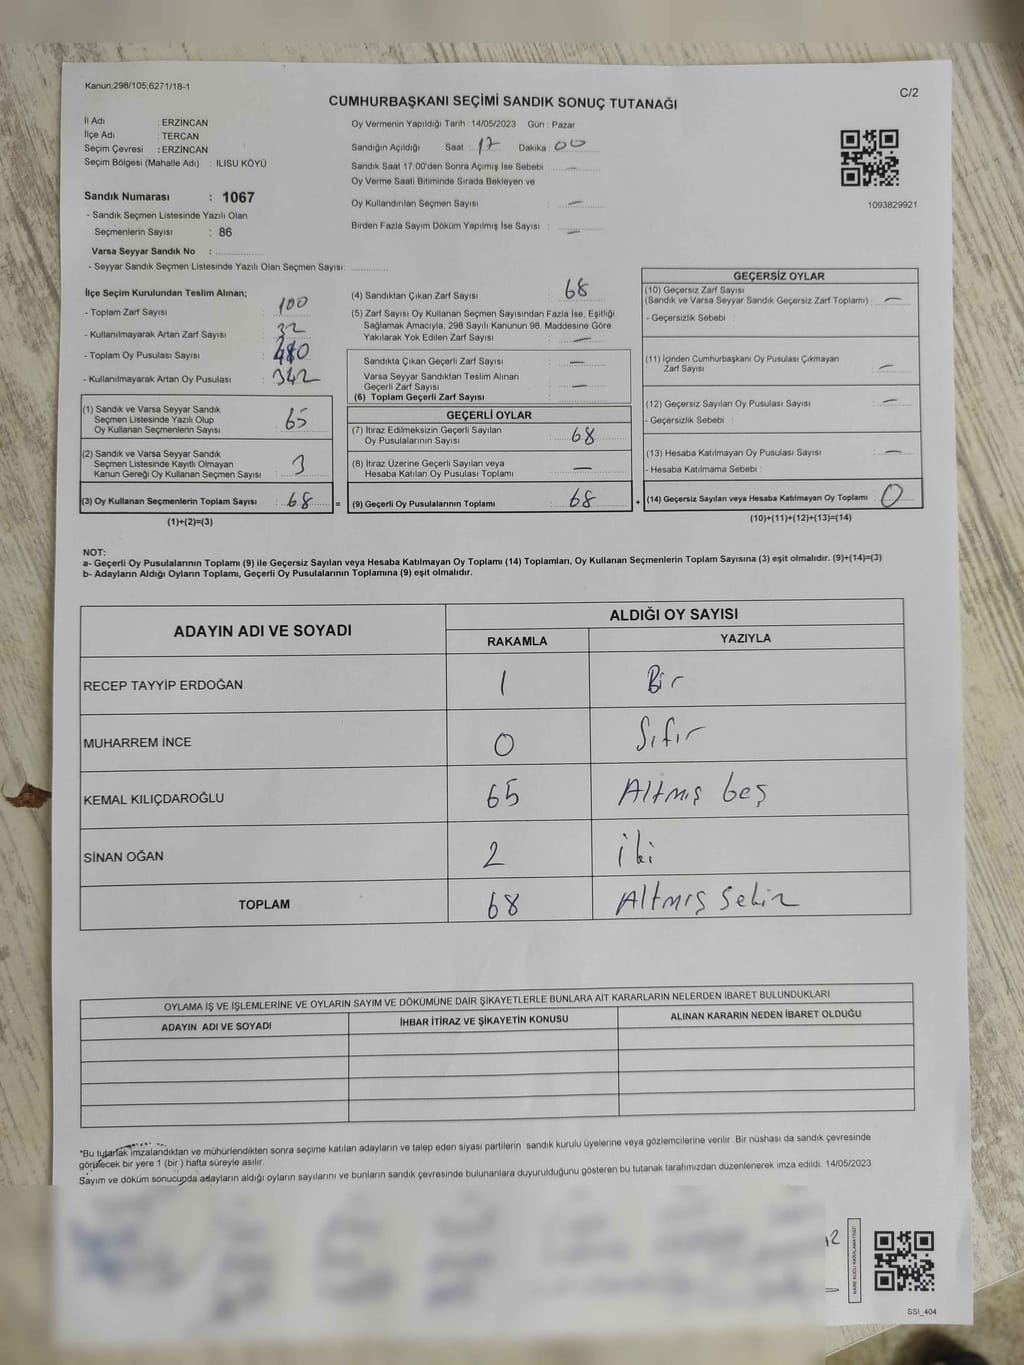 Kanun;298/105;6271/18-1
C/2
CUMHURBAŞKANI SEÇİMİ SANDIK SONUÇ TUTANAĞI
İl Adı : ERZİNCAN
İlçe Adı : TERCAN
Seçim Çevresi : ERZİNCAN
Seçim Bölgesi (Mahalle Adı) : ILISU KÖYÜ
Sandık Numarası : 1067
- Sandık Seçmen Listesinde Yazılı Olan
Seçmenlerin Sayısı : 86
Varsa Seyyar Sandık No :
- Seyyar Sandık Seçmen Listesinde Yazılı Olan Seçmen Sayısı:
Oy Vermenin Yapıldığı Tarih : 14/05/2023 Gün : Pazar
Sandığın Açıldığı Saat : 17 Dakika : 00
Sandık Saat 17:00'den Sonra Açımış İse Sebebi : —
Oy Verme Saati Bitiminde Sırada Bekleyen ve
Oy Kullandırılan Seçmen Sayısı : —
Birden Fazla Sayım Döküm Yapılmış İse Sayısı : —
1093829921
İlçe Seçim Kurulundan Teslim Alınan;
- Toplam Zarf Sayısı : 100
- Kullanılmayarak Artan Zarf Sayısı : 32
- Toplam Oy Pusulası Sayısı :
- Kullanılmayarak Artan Oy Pusulası : 342
(1) Sandık ve Varsa Seyyar Sandık
Seçmen Listesinde Yazılı Olup
Oy Kullanan Seçmenlerin Sayısı : 65
(2) Sandık ve Varsa Seyyar Sandık
Seçmen Listesinde Kayıtlı Olmayan
Kanun Gereği Oy Kullanan Seçmen Sayısı : 3
(3) Oy Kullanan Seçmenlerin Toplam Sayısı : 68 =
(1)+(2)=(3)
(4) Sandıktan Çıkan Zarf Sayısı : 68
(5) Zarf Sayısı Oy Kullanan Seçmen Sayısından Fazla İse, Eşitliği
Sağlamak Amacıyla; 298 Sayılı Kanunun 98. Maddesine Göre
Yakılarak Yok Edilen Zarf Sayısı : —
Sandıkta Çıkan Geçerli Zarf Sayısı : —
Varsa Seyyar Sandıktan Teslim Alınan
Geçerli Zarf Sayısı : —
(6) Toplam Geçerli Zarf Sayısı :
GEÇERLİ OYLAR
(7) İtiraz Edilmeksizin Geçerli Sayılan
Oy Pusulalarının Sayısı : 68
(8) İtiraz Üzerine Geçerli Sayılan veya
Hesaba Katılan Oy Pusulaları Toplamı : —
(9) Geçerli Oy Pusulalarının Toplamı : 68 +
GEÇERSİZ OYLAR
(10) Geçersiz Zarf Sayısı
(Sandık ve Varsa Seyyar Sandık Geçersiz Zarf Toplamı) : —
- Geçersizlik Sebebi :
(11) İçinden Cumhurbaşkanı Oy Pusulası Çıkmayan
Zarf Sayısı : —
(12) Geçersiz Sayılan Oy Pusulası Sayısı : —
- Geçersizlik Sebebi :
(13) Hesaba Katılmayan Oy Pusulası Sayısı : —
- Hesaba Katılmama Sebebi :
(14) Geçersiz Sayılan veya Hesaba Katılmayan Oy Toplamı : 0
(10)+(11)+(12)+(13)=(14)
NOT:
a- Geçerli Oy Pusulalarının Toplamı (9) ile Geçersiz Sayılan veya Hesaba Katılmayan Oy Toplamı (14) Toplamları, Oy Kullanan Seçmenlerin Toplam Sayısına (3) eşit olmalıdır. (9)+(14)=(3)
b- Adayların Aldığı Oyların Toplamı, Geçerli Oy Pusulalarının Toplamına (9) eşit olmalıdır.
ADAYIN ADI VE SOYADI
ALDIĞI OY SAYISI
RAKAMLA YAZIYLA
RECEP TAYYİP ERDOĞAN 1 Bir
MUHARREM İNCE 0 Sıfır
KEMAL KILIÇDAROĞLU 65 Altmış beş
SİNAN OĞAN 2 iki
TOPLAM 68 Altmış sekiz
OYLAMA İŞ VE İŞLEMLERİNE VE OYLARIN SAYIM VE DÖKÜMÜNE DAİR ŞİKAYETLERLE BUNLARA AİT KARARLARIN NELERDEN İBARET BULUNDUKLARI
ADAYIN ADI VE SOYADI İHBAR İTİRAZ VE ŞİKAYETİN KONUSU ALINAN KARARIN NEDEN İBARET OLDUĞU
*Bu tutanak imzalandıktan ve mühürlendikten sonra seçime katılan adayların ve talep eden siyasi partilerin sandık kurulu üyelerine veya gözlemcilerine verilir. Bir nüshası da sandık çevresinde
görülecek bir yere 1 (bir) hafta süreyle asılır.
Sayım ve döküm sonucunda adayların aldığı oyların sayılarını ve bunların sandık çevresinde bulunanlara duyurulduğunu gösteren bu tutanak tarafımızdan düzenlenerek imza edildi. 14/05/2023
KARE KODU KARALAMAYINIZ!
SSI_404